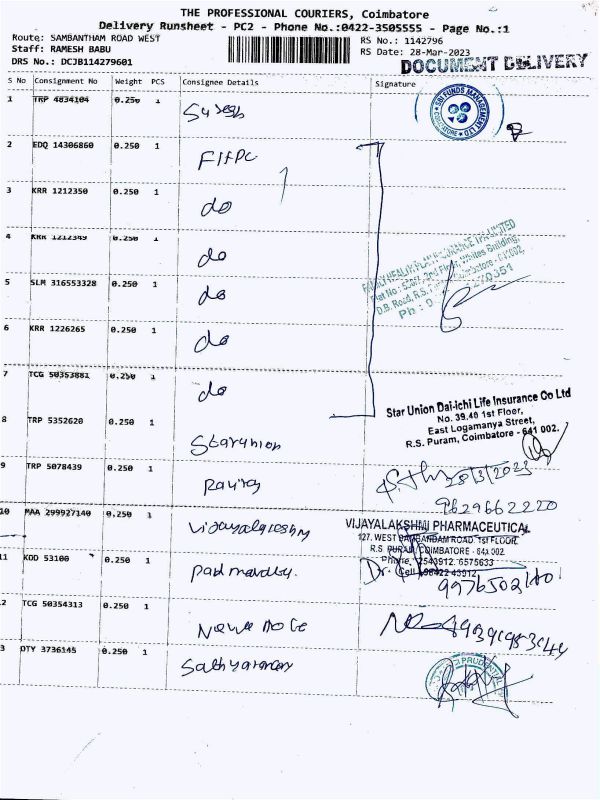 THE PROFESSIONAL COURIERS, Coimbatore
Delivery Runsheet - PC2 - Phone No.:0422-3505555 - Page No.:1
Route: SAMBANTHAM ROAD WEST
RS No.: 1142796
Staff: RAMESH BABU
RS Date: 28-Mar-2023
DRS No.: DCJB114279601
DOCUMENT DELIVERY
S No Consignment No Weight PCS Consignee Details Signature
1 TRP 4834104 0.250 1 Suresh
SBI FUNDS MANAGEMENT LTD
COIMBATORE
2 EDQ 14306860 0.250 1 FHPL
3 KRR 1212350 0.250 1 do
4 KRR 1212349 0.250 1 do
FAMILY HEALTH PLAN INSURANCE TPA LIMITED
2nd Floor, Building,
D.B. Road, R.S. Coimbatore - 641002.
Ph : 0
5 SLM 316553328 0.250 1 do
6 KRR 1226265 0.250 1 do
7 TCG 50353881 0.250 1 do
Star Union Dai-ichi Life Insurance Co Ltd
No. 39,40 1st Floor,
East Logamanya Street,
R.S. Puram, Coimbatore - 641 002.
8 TRP 5352620 0.250 1 Starunion
9 TRP 5078439 0.250 1
28/3/2023
9629662220
10 MAA 299927140 0.250 1
VIJAYALAKSHMI PHARMACEUTICAL
127, WEST SAMBANDAM ROAD 1st FLOOR,
R.S. PURAM, COIMBATORE - 641 002
Phone: 2543912, 6575633
Cell: 98422 43912
11 KDD 53100 0.250 1
Dr.
2 TCG 50354313 0.250 1
3 DTY 3736145 0.250 1
PRUDENTIAL